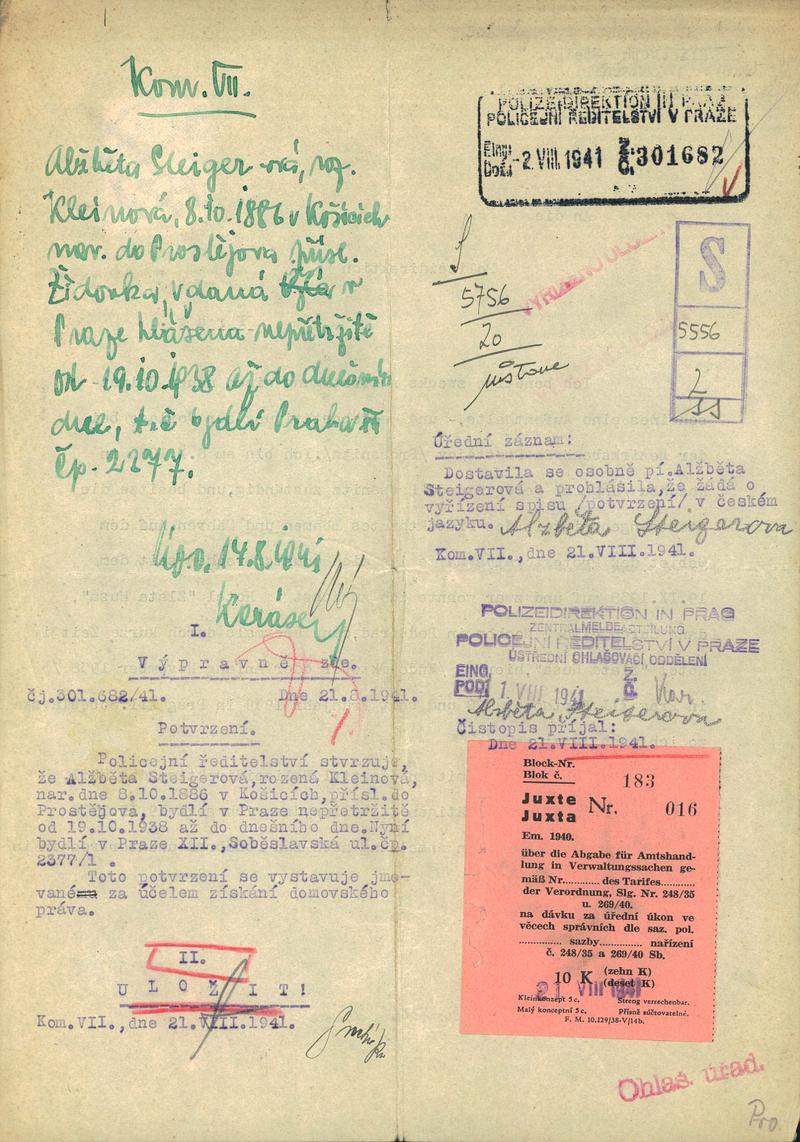 Kom. VII.
Alžběta Steiger-ová, roz.
Kleinová, 8.10.1886 v Košicích
nar. do Prostějova přísl.
Židovka, vdaná v
Praze hlášena nepřetržitě
od 19.10.1938 až do dnešního
dne, t.č. bydlí Praha XII
čp. 2277.
14.8.1941
I.
Výpravně zde.
čj.301.682/41. Dne 21.8.1941.
Potvrzení.
Policejní ředitelství stvrzuje,
že Alžběta Steigerová,rozená Kleinová,
nar.dne 8.10.1886 v Košicích,přísl.do
Prostějova, bydlí v Praze nepřetržitě
od 19.10.1938 až do dnešního dne.Nyní
bydlí v Praze XII.,Soběslavská ul.čp.
2377/1 .
Toto potvrzení se vystavuje jme-
ované za účelem získání domovského
práva.
II.
ULOŽIT!
Kom.VII.,dne 21.VIII.1941.
POLIZEIDIREKTION IN PRAG
POLICEJNÍ ŘEDITELSTVÍ V PRAZE
Eing.
Došl. -2.VIII.1941 Z. Č. 301682
S
5756
20
místove
S
5556
2
11
Úřední záznam:
Dostavila se osobně pí.Alžběta
Steigerová a prohlásila,že žádá o
vyřízení spisu /potvrzení/ v českém
jazyku. Alžběta Steigerova
Kom.VII.,dne 21.VIII.1941.
POLIZEIDIREKTION IN PRAG
ZENTRALMELDEABTEILUNG
POLICEJNÍ ŘEDITELSTVÍ V PRAZE
ÚSTŘEDNÍ OHLAŠOVACÍ ODDĚLENÍ
EING.
PODÍ 1. VIII 1941 Z. Č.
Alžběta Steigerova
Čistopis přijal:
Dne 21.VIII.1941.
Block-Nr.
Blok č. 183
Juxte
Juxta Nr. 016
Em. 1940.
über die Abgabe für Amtshand-
lung in Verwaltungssachen ge-
mäß Nr............ des Tarifes...........
der Verordnung, Slg. Nr. 248/35
u. 269/40.
na dávku za úřední úkon ve
věcech správních dle saz. pol.
............... sazby............. nařízení
č. 248/35 a 269/40 Sb.
10 K (zehn K)
(deset K)
21 VIII 1941
Kleinkonzept 5 c. Streng verrechenbar.
Malý konceptní 5 c. Přísně súčtovatelné.
F. M. 10.129/38-V/14b.
Ohlaš. úřad.
Pro.